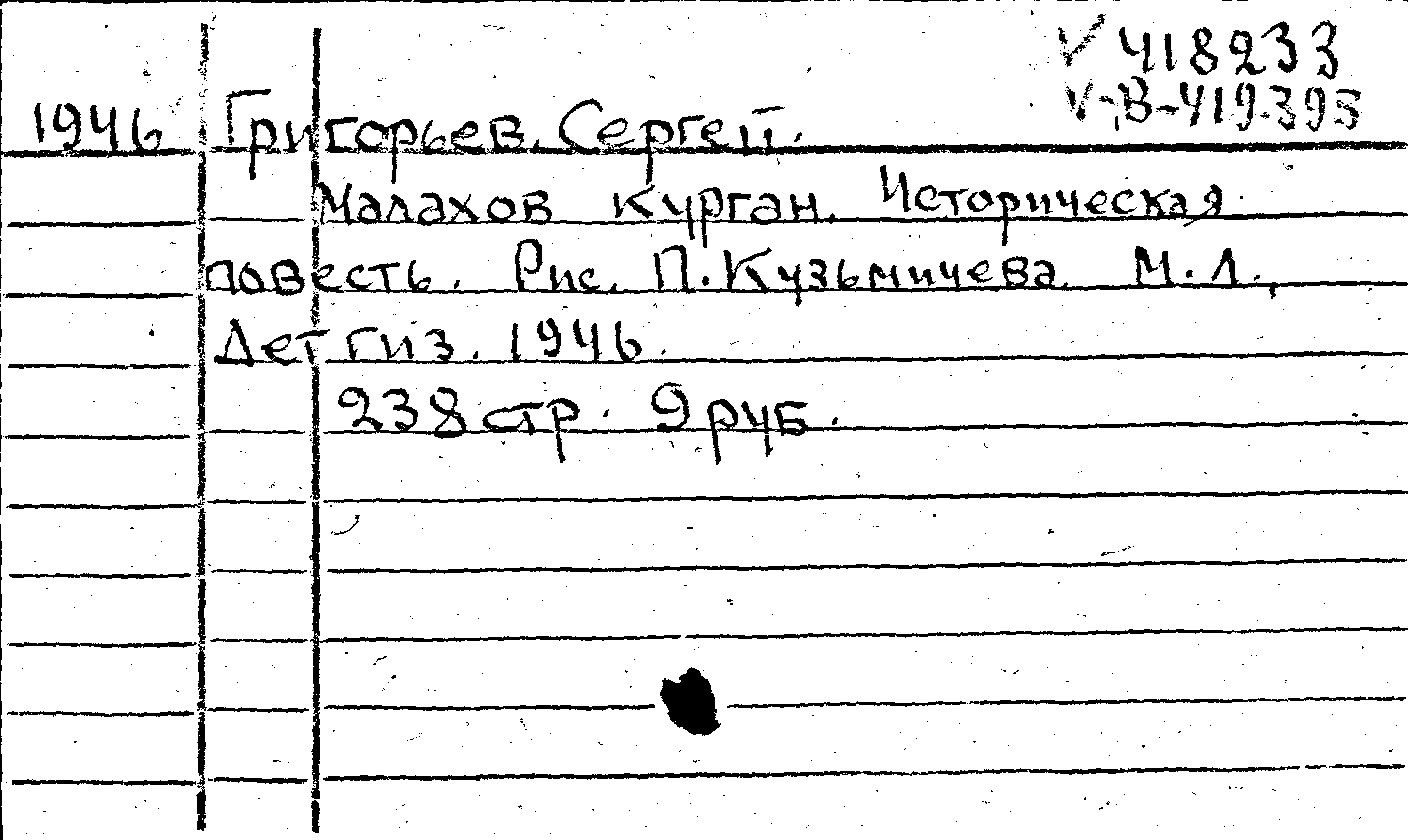 V 418233
V-B-419.395
1946 Григорьев. Сергей.
Малахов курган. Историческая
повесть. Рис. П. Кузьмичева. М.Л.,
Детгиз. 1946.
238 стр. 9 руб.